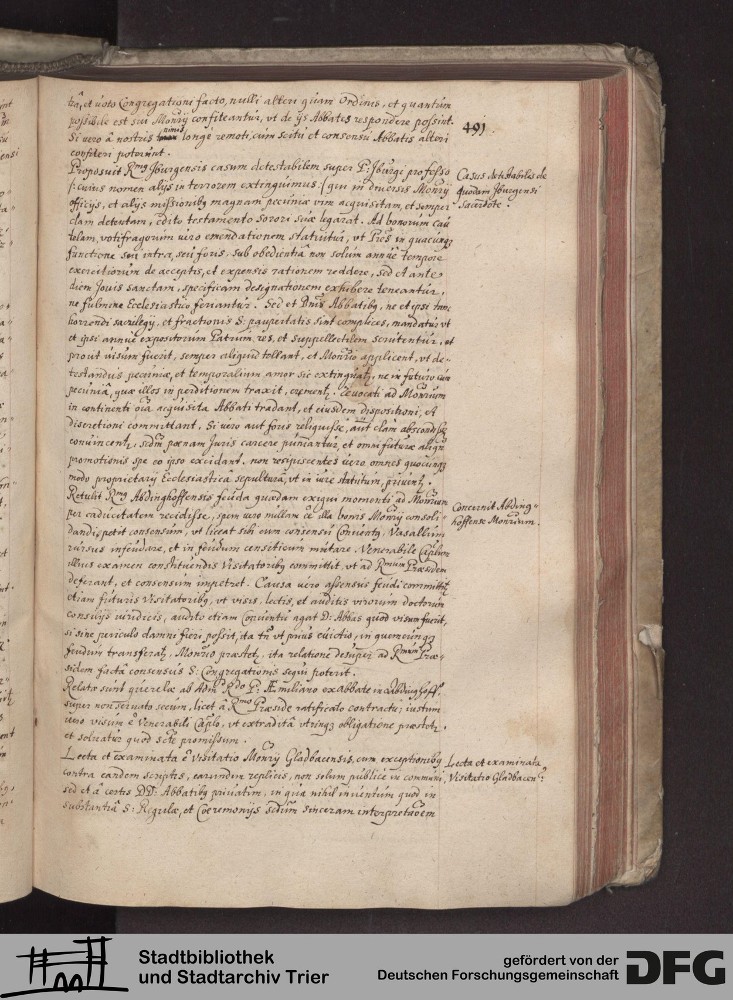 491
tra, et voto Congregationi facto, nulli alteri quam Ordinis, et quantum
possibile est sui Monrÿ confiteantur, vt de ijs Abbates respondere possint.
Si vero â nostris nimis longè remoti, cum scitu et consensu Abbatis alteri
confiteri poterunt.
Proposuit Rmg Jburgensis casum detestabilem super P: Jburgi professo
/: cuius nomen alijs in terrorem extinguimus :/ qui in diversis Monrÿ
officijs, et alijs missionibg magnam pecuniæ vim acquisitam, et semper
clam detentam, edito testamento sorori suæ legarat. Ad bonorum cau
telam, votifragorum vero emendationem statuitur, vt Pres in quacungg
functione seu intra, seu foris, sub obedientia non solum annuè tempore
exercitiorum de acceptis, et expensis rationem reddere, sed et ante
diem Jouis sanctam, specificam designationem exhibere teneantur,
ne fulmine Ecclesiastico feriantur. Sed et Dnis Abbatibg, ne et ipsi tam
horrendi sacrilegÿ, et fractionis S: paupertatis sint complices, mandatur vt
et ipsi annuè expositorum Patrum, res, et suppellectilem scrutentur, et
prout visum fuerit, semper aliquid tollant, et Monrio applicent, vt de-
testandus pecuniæ, et temporalium amor sic extinguatr, ne in futuro cum
pecunia, quæ illos in perditionem traxit, crementr. Reuocati ad Monrium
in continenti oia acquisita Abbati tradant, et eiusdem dispositioni, et
discretioni committant, Si vero aut foris reliquisse, aut clam abscondisse
convincentr, scdm pœnam Juris carcere puniantur, et omni futuræ alicujs
promotionis spe eo ipso excidant. non resipiscentes vero omnes quocungg
modo proprietarÿ Ecclesiastica sepultura, vt in iure statutum, priuentr.
Retulit Rmg Abdinghoffensis feuda quædam exigui momenti ad Monrium
per caducitatem recidisse, spem vero nullam eê illa bonis Monrÿ consoli-
dandi, petit consensum, vt liceat sibi cum consensu Conventg, Vasallum
rursus infeudare, et in feudum censiticum mutare. Venerabile Caplum
illius examen constituendis Visitatoribg committit, vt ad Rmum Præsidem
deferant, et consensum impetret. Causa vero assensus feudi committitr
etiam futuris Visitatoribg, vt visis, lectis, et auditis virorum doctorum
consilijs iuridicis, audito etiam Conventu agat D: Abbas quod visum fuerit,
si sine periculo damni fieri possit, ita tn vt prius cautio, in quemcungg
feudum transferatr, Monrio præstetr, ita relatione desuper ad Rmum Præ-
sidem facta consensus S: Congregationis sequi poterit.
Relatæ sunt querelæ ab Adm Rdo P: Æmiliano exabbate in Abdinghoff,
super non seruato secum, licet â Rmo Præside ratificato contractu; iustum
vero visum ê Venerabili Caplo, vt extradita vtringg obligatione præstetr,
et soluatur quod scte promissum.
Lecta et examinata ê Visitatio Monrÿ Gladbacensis, cum exceptionibg
contra eandem scriptis, earumdem replicis, non solum publicè in communi,
sed et â certis DD: Abbatibg priuatim, in qua nihil inuentum quod in
substantia S: Regulæ, et Cœremonijs scdum sinceram interpretaoem
Casus detestabilis de
quodam Jburgensi
Sacerdote.
Concernit Abding=
hoffense Monrium.
Lecta et examinata
Visitatio Gladbacens:
Stadtbibliothek
und Stadtarchiv Trier
gefördert von der
Deutschen Forschungsgemeinschaft
DFG